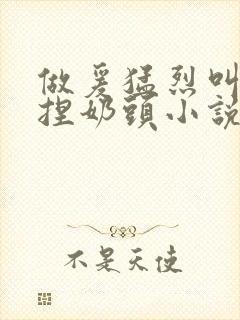 做爰猛烈叫
捏奶頭小説
不是天使